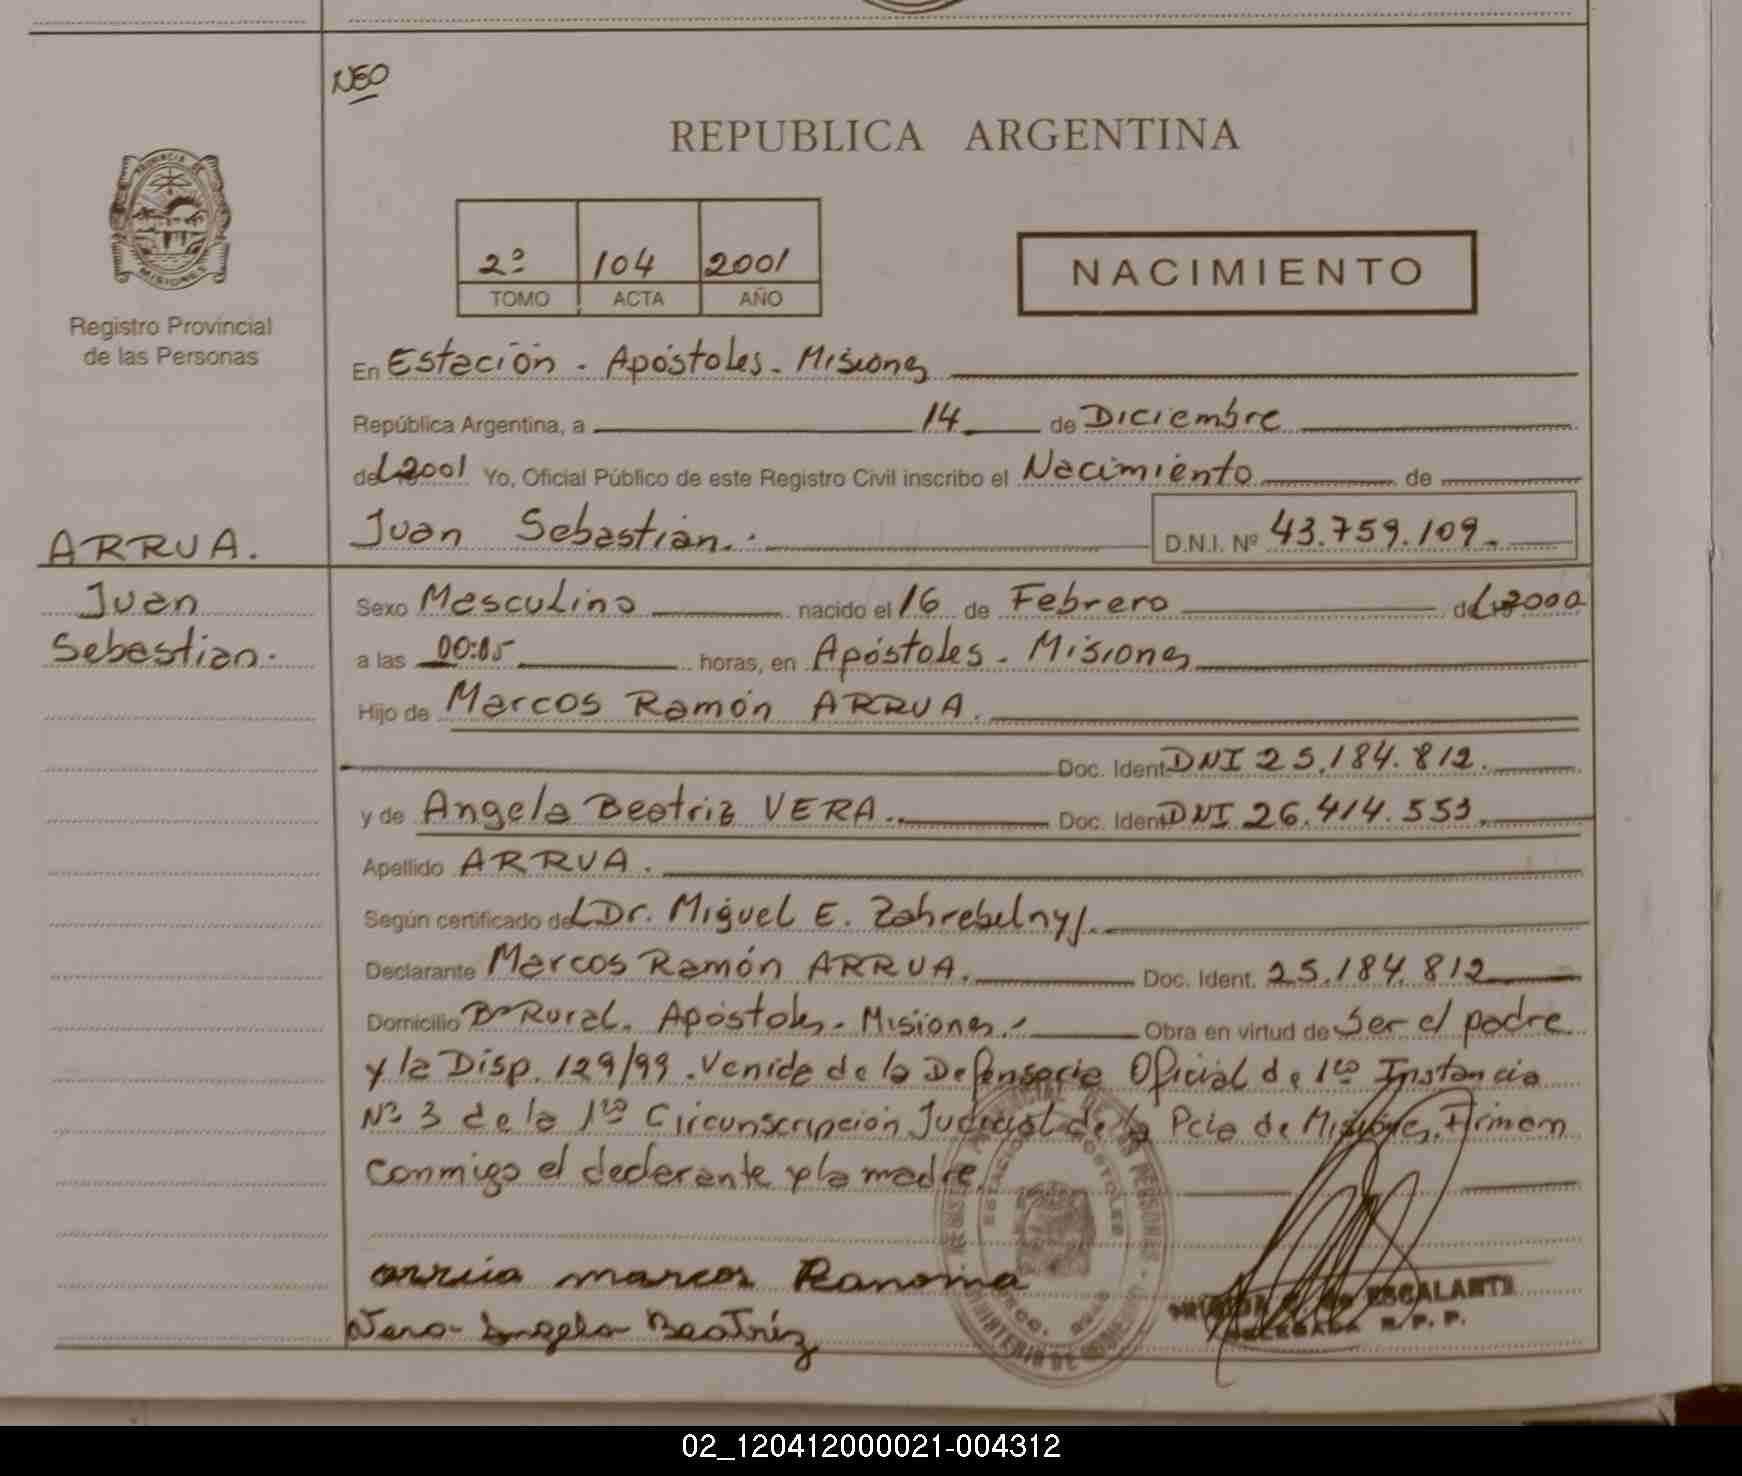 NEO
REPUBLICA ARGENTINA
PROVINCIA DE
MISIONES
2º 104 2001
TOMO ACTA AÑO
NACIMIENTO
Registro Provincial
de las Personas
En Estación - Apóstoles - Misiones
República Argentina, a 14 de Diciembre
del 2001 Yo, Oficial Público de este Registro Civil inscribo el Nacimiento de
ARRUA.
Juan Sebastián.- D.N.I. Nº 43.759.109.-
Juan
Sebastian.
Sexo Masculino nacido el 16 de Febrero del 2000
a las 00:05 horas, en Apóstoles - Misiones
Hijo de Marcos Ramón ARRUA.
Doc. Ident. DNI 25.184.812.
y de Angela Beatriz VERA.- Doc. Ident. DNI 26.414.553.
Apellido ARRUA.
Según certificado del Dr. Miguel E. Zahrebelny/.-
Declarante Marcos Ramón ARRUA. Doc. Ident. 25.184.812
Domicilio Bº Rural. Apóstoles - Misiones.- Obra en virtud de Ser el padre
y la Disp. 129/99. Venida de la Defensoría Oficial de 1ra Instancia
Nº 3 de la 1ra Circunscripción Judicial de la Pcia de Misiones. Firman
conmigo el declarante y la madre.
arrua marcos Ramoma
Vera Angela Beatriz
ESCALANTE
DELEGADA R. P. P.
02_120412000021-004312